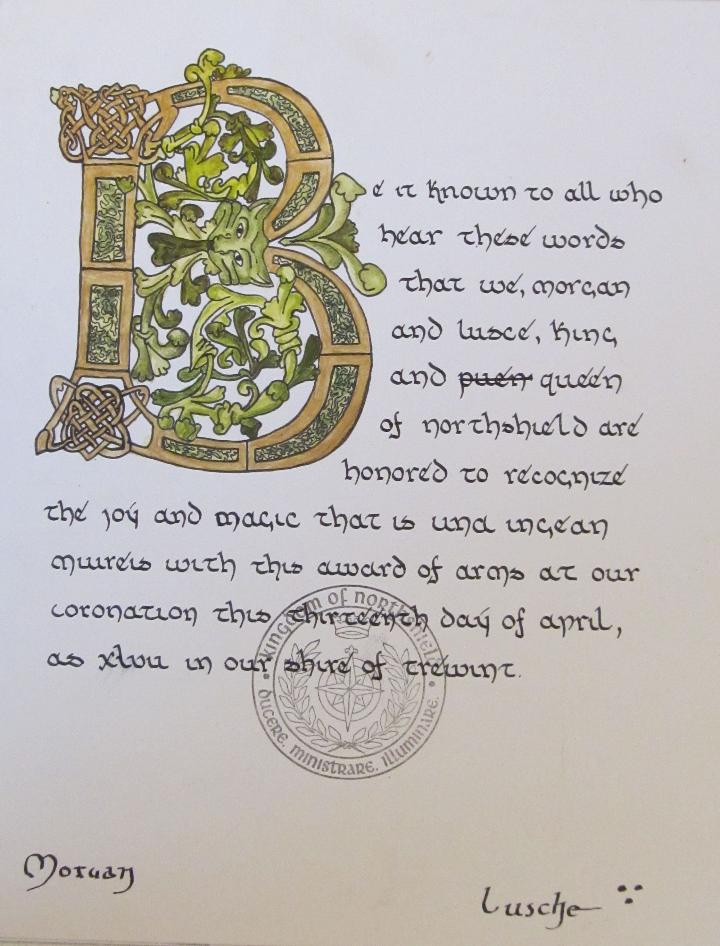 Be it known to all who
hear these words
that we, morgan
and lusce, King
and puen queen
of northshield are
honored to recognize
the joy and magic that is una ingean
muireis with this award of arms at our
coronation this thirteenth day of april,
as xlvii in our shire of trewint.
Kingdom of Northshield
ducere. ministrare. illuminare.
Morgan
Lusche